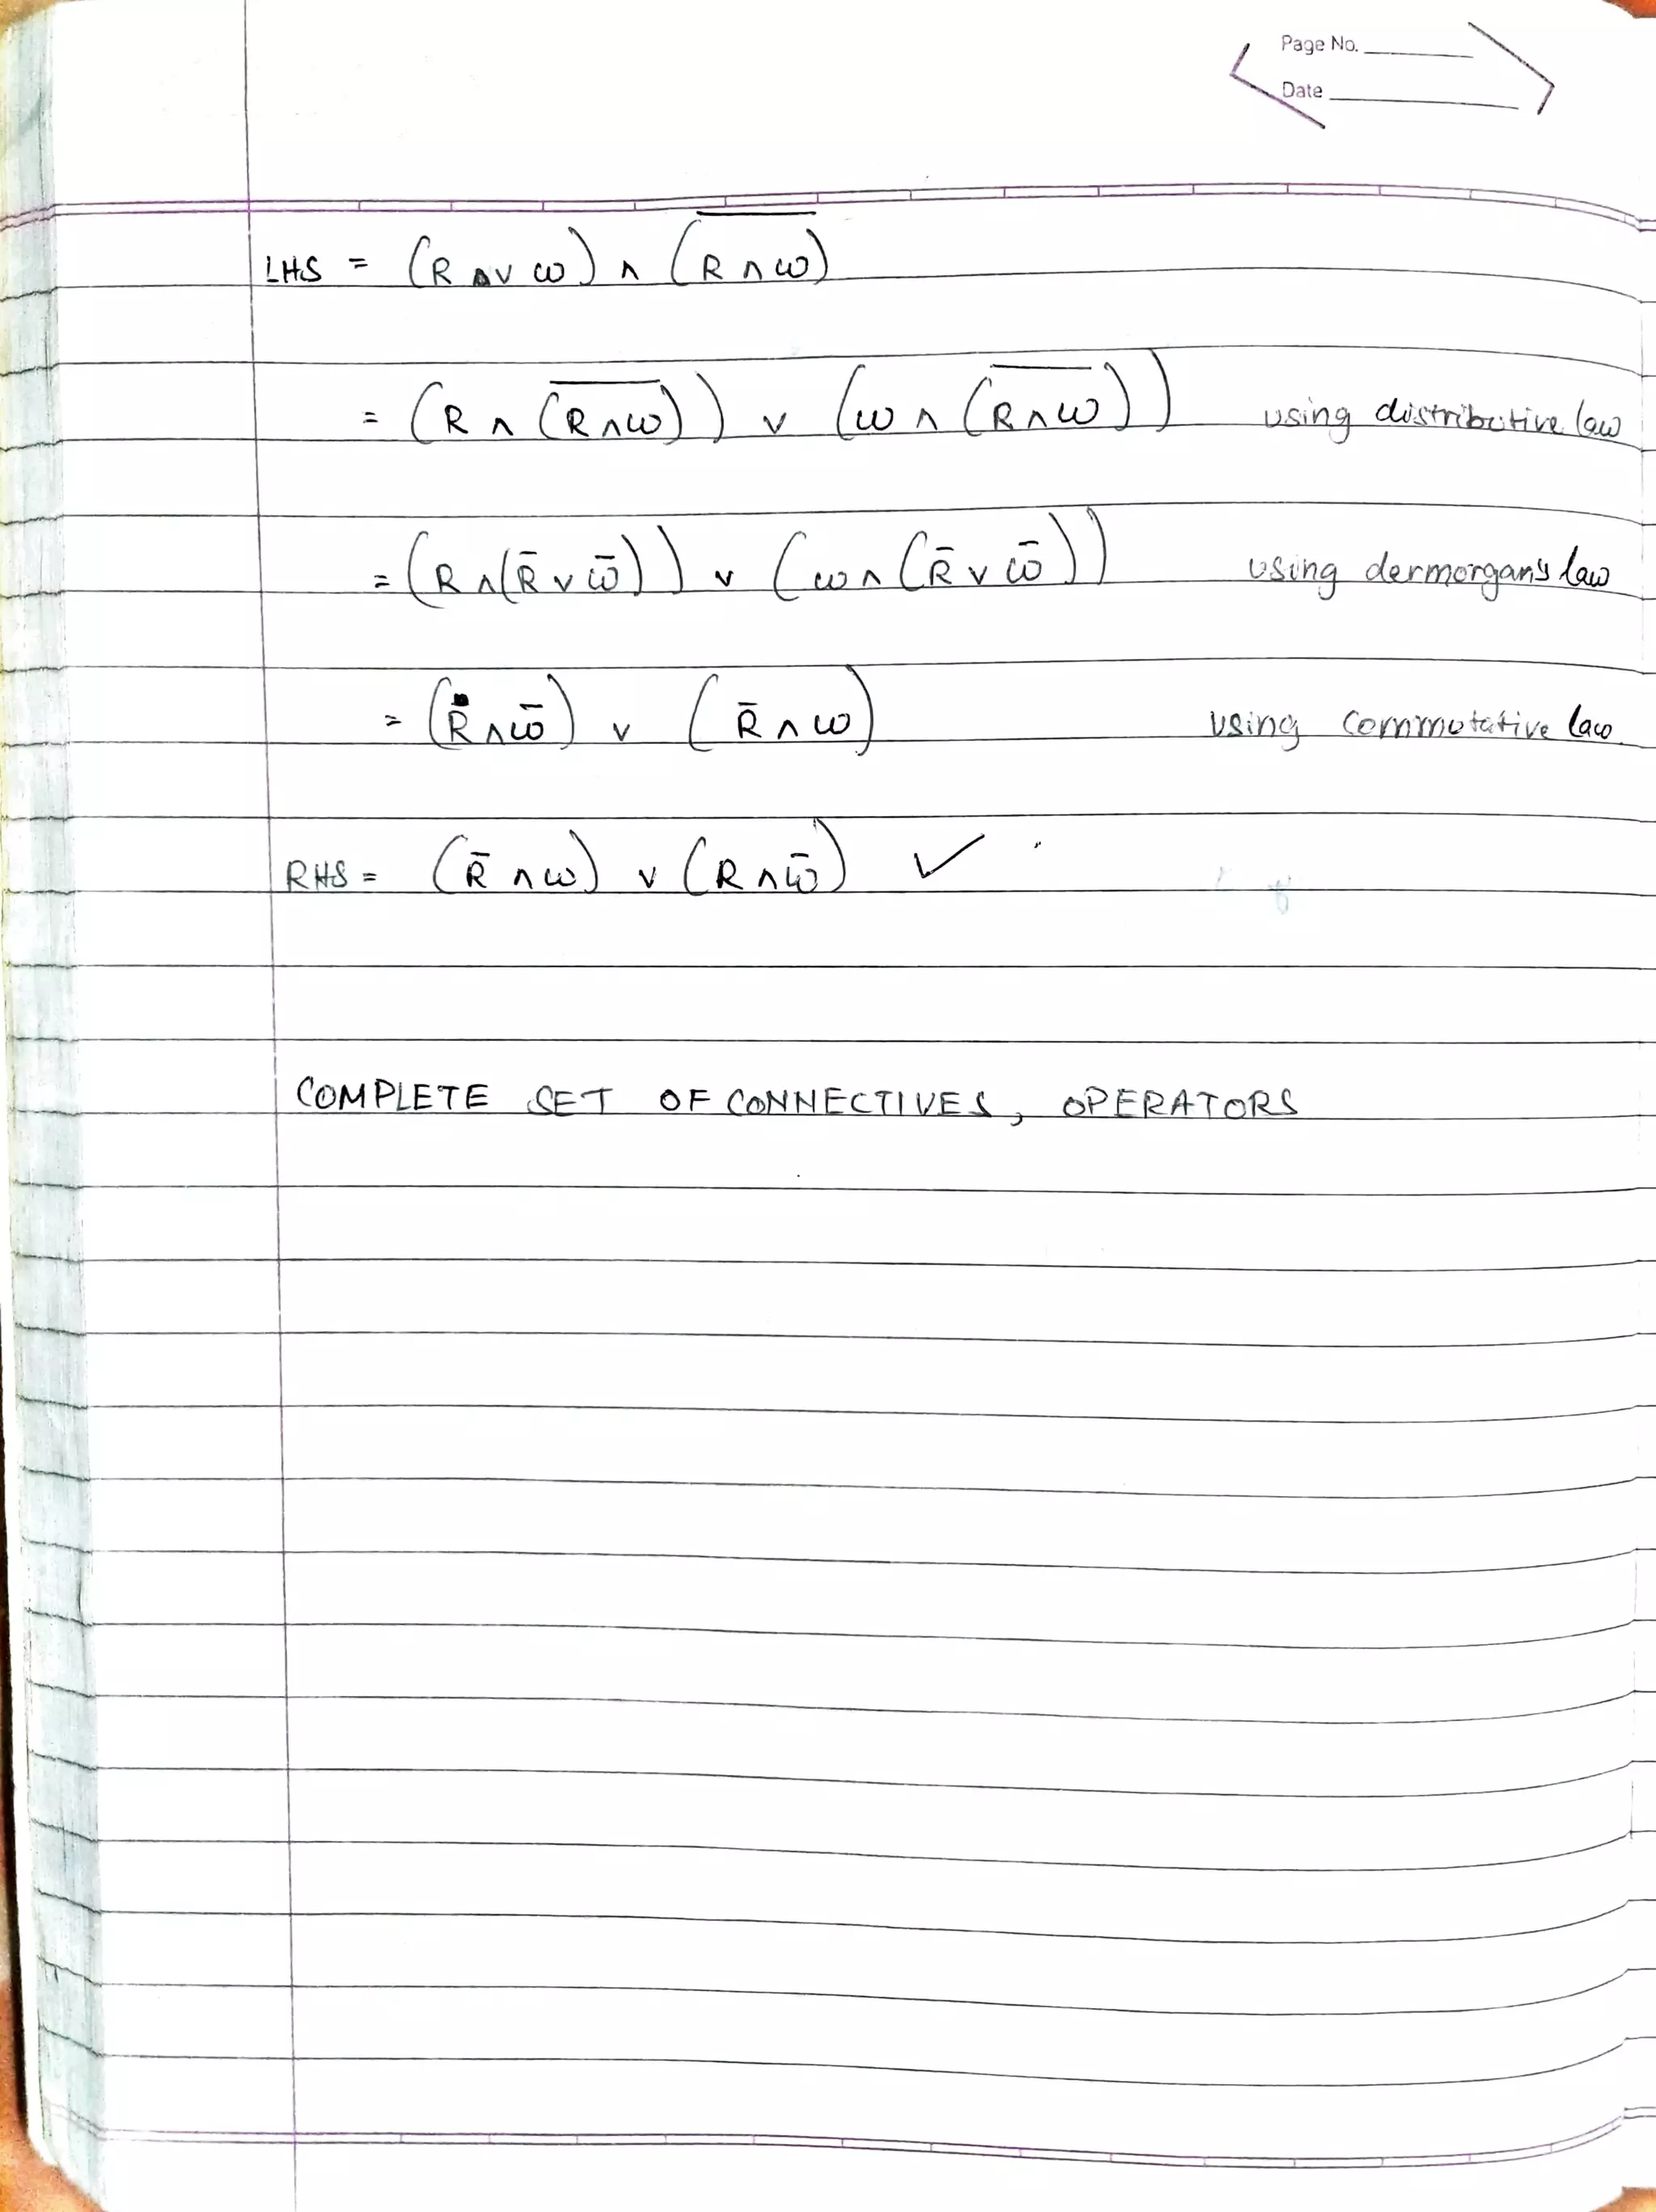 Page No.
Date
LHS = (R ∨ ω) ∧ (R̅ ̅∧̅ ̅ω̅)
= (R ∧ (R̅ ̅∧̅ ̅ω̅)) ∨ (ω ∧ (R̅ ̅∧̅ ̅ω̅)) using distributive law
= (R ∧ (R̅ ∨ ω̅)) ∨ (ω ∧ (R̅ ∨ ω̅)) using dermorgan's law
= (R ∧ ω̅) ∨ (R̅ ∧ ω) using commutative law
RHS = (R̅ ∧ ω) ∨ (R ∧ ω̅) ✓
COMPLETE SET OF CONNECTIVES, OPERATORS